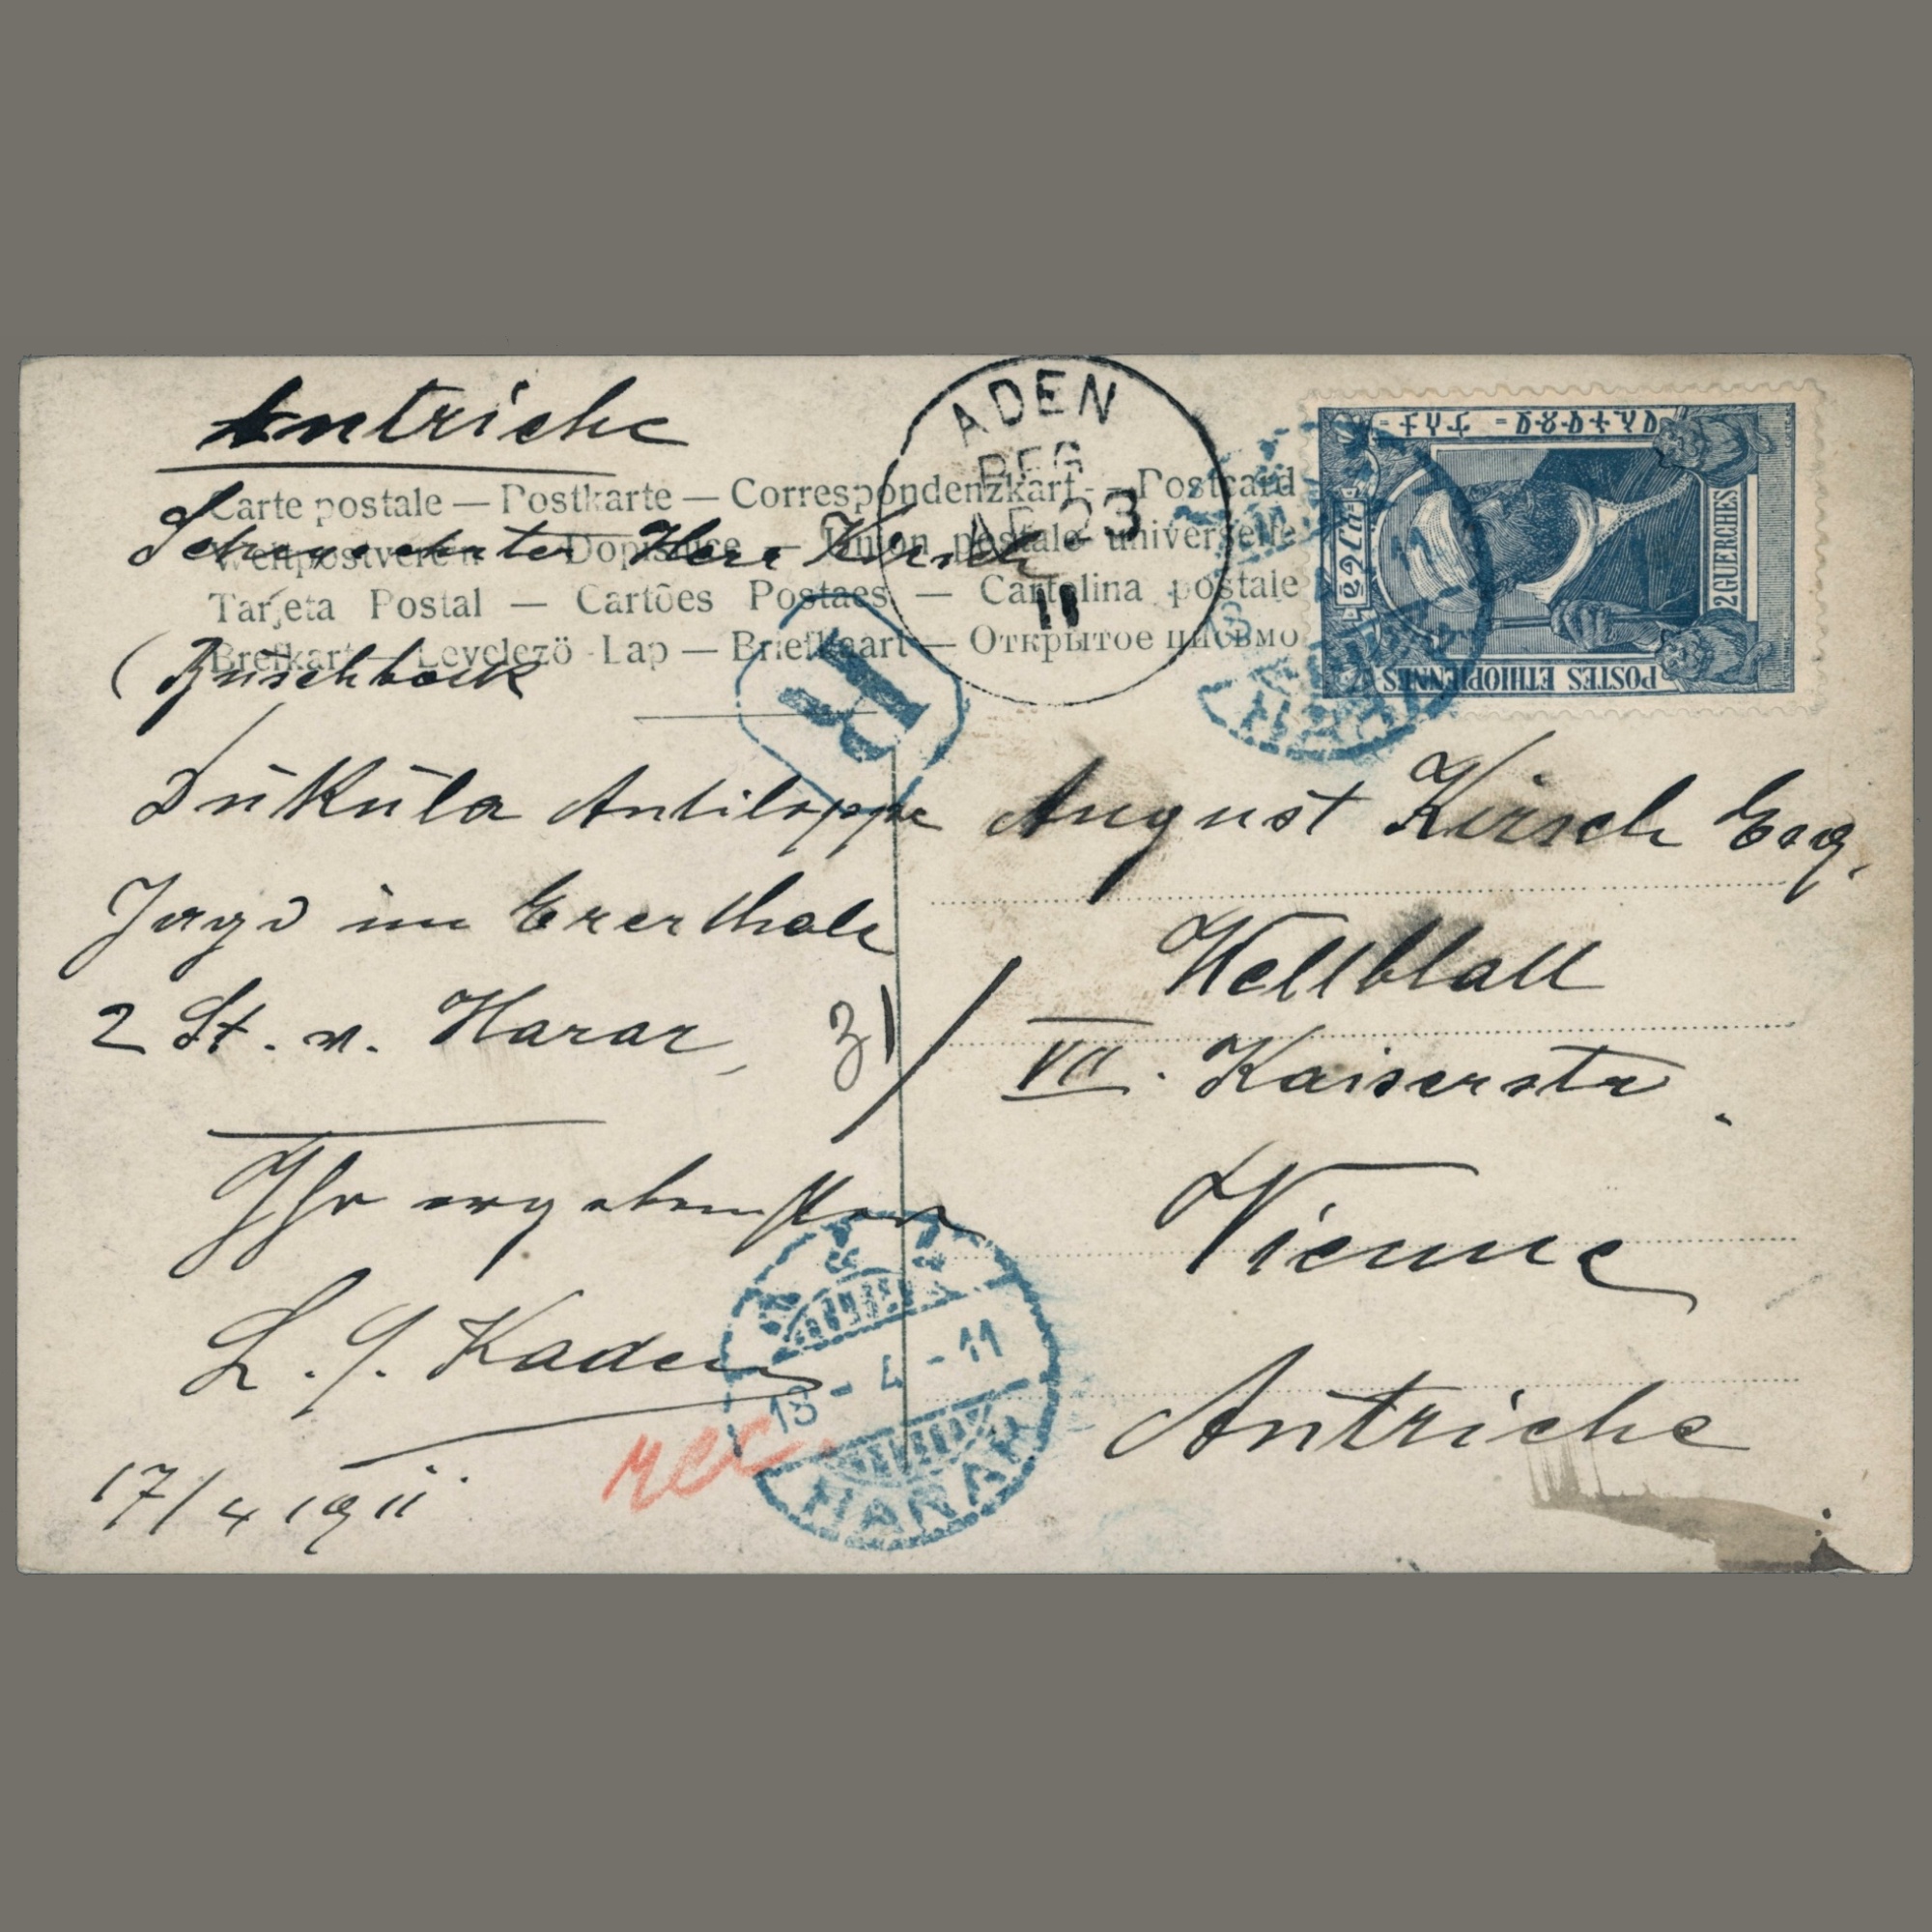 Autriche
Carte postale — Postkarte — Correspondenzkart — Postcard
Weltpostverein Dopisnice — Union postale universelle
Tarjeta Postal — Cartões Postaes — Cartolina postale
Brefkart — Levelezö-Lap — Briefkaart — Открытое письмо
Sehrgeehrter Herr Kirsch
(Buschbock
Dükula Antiloppe
Jagd im Ererthale
2 St. v. Harar,
31
Ihr ergebenster
L. G. Kaden
17/4 1911
rec.
ADEN
REG
AP 23
11
R
POSTES ETHIOPIENNES
2 GUERCHES
August Kirsch Esq.
Weltblatt
VII. Kaiserstr.
Vienne
Autriche
18 - 4 - 11
HARAR